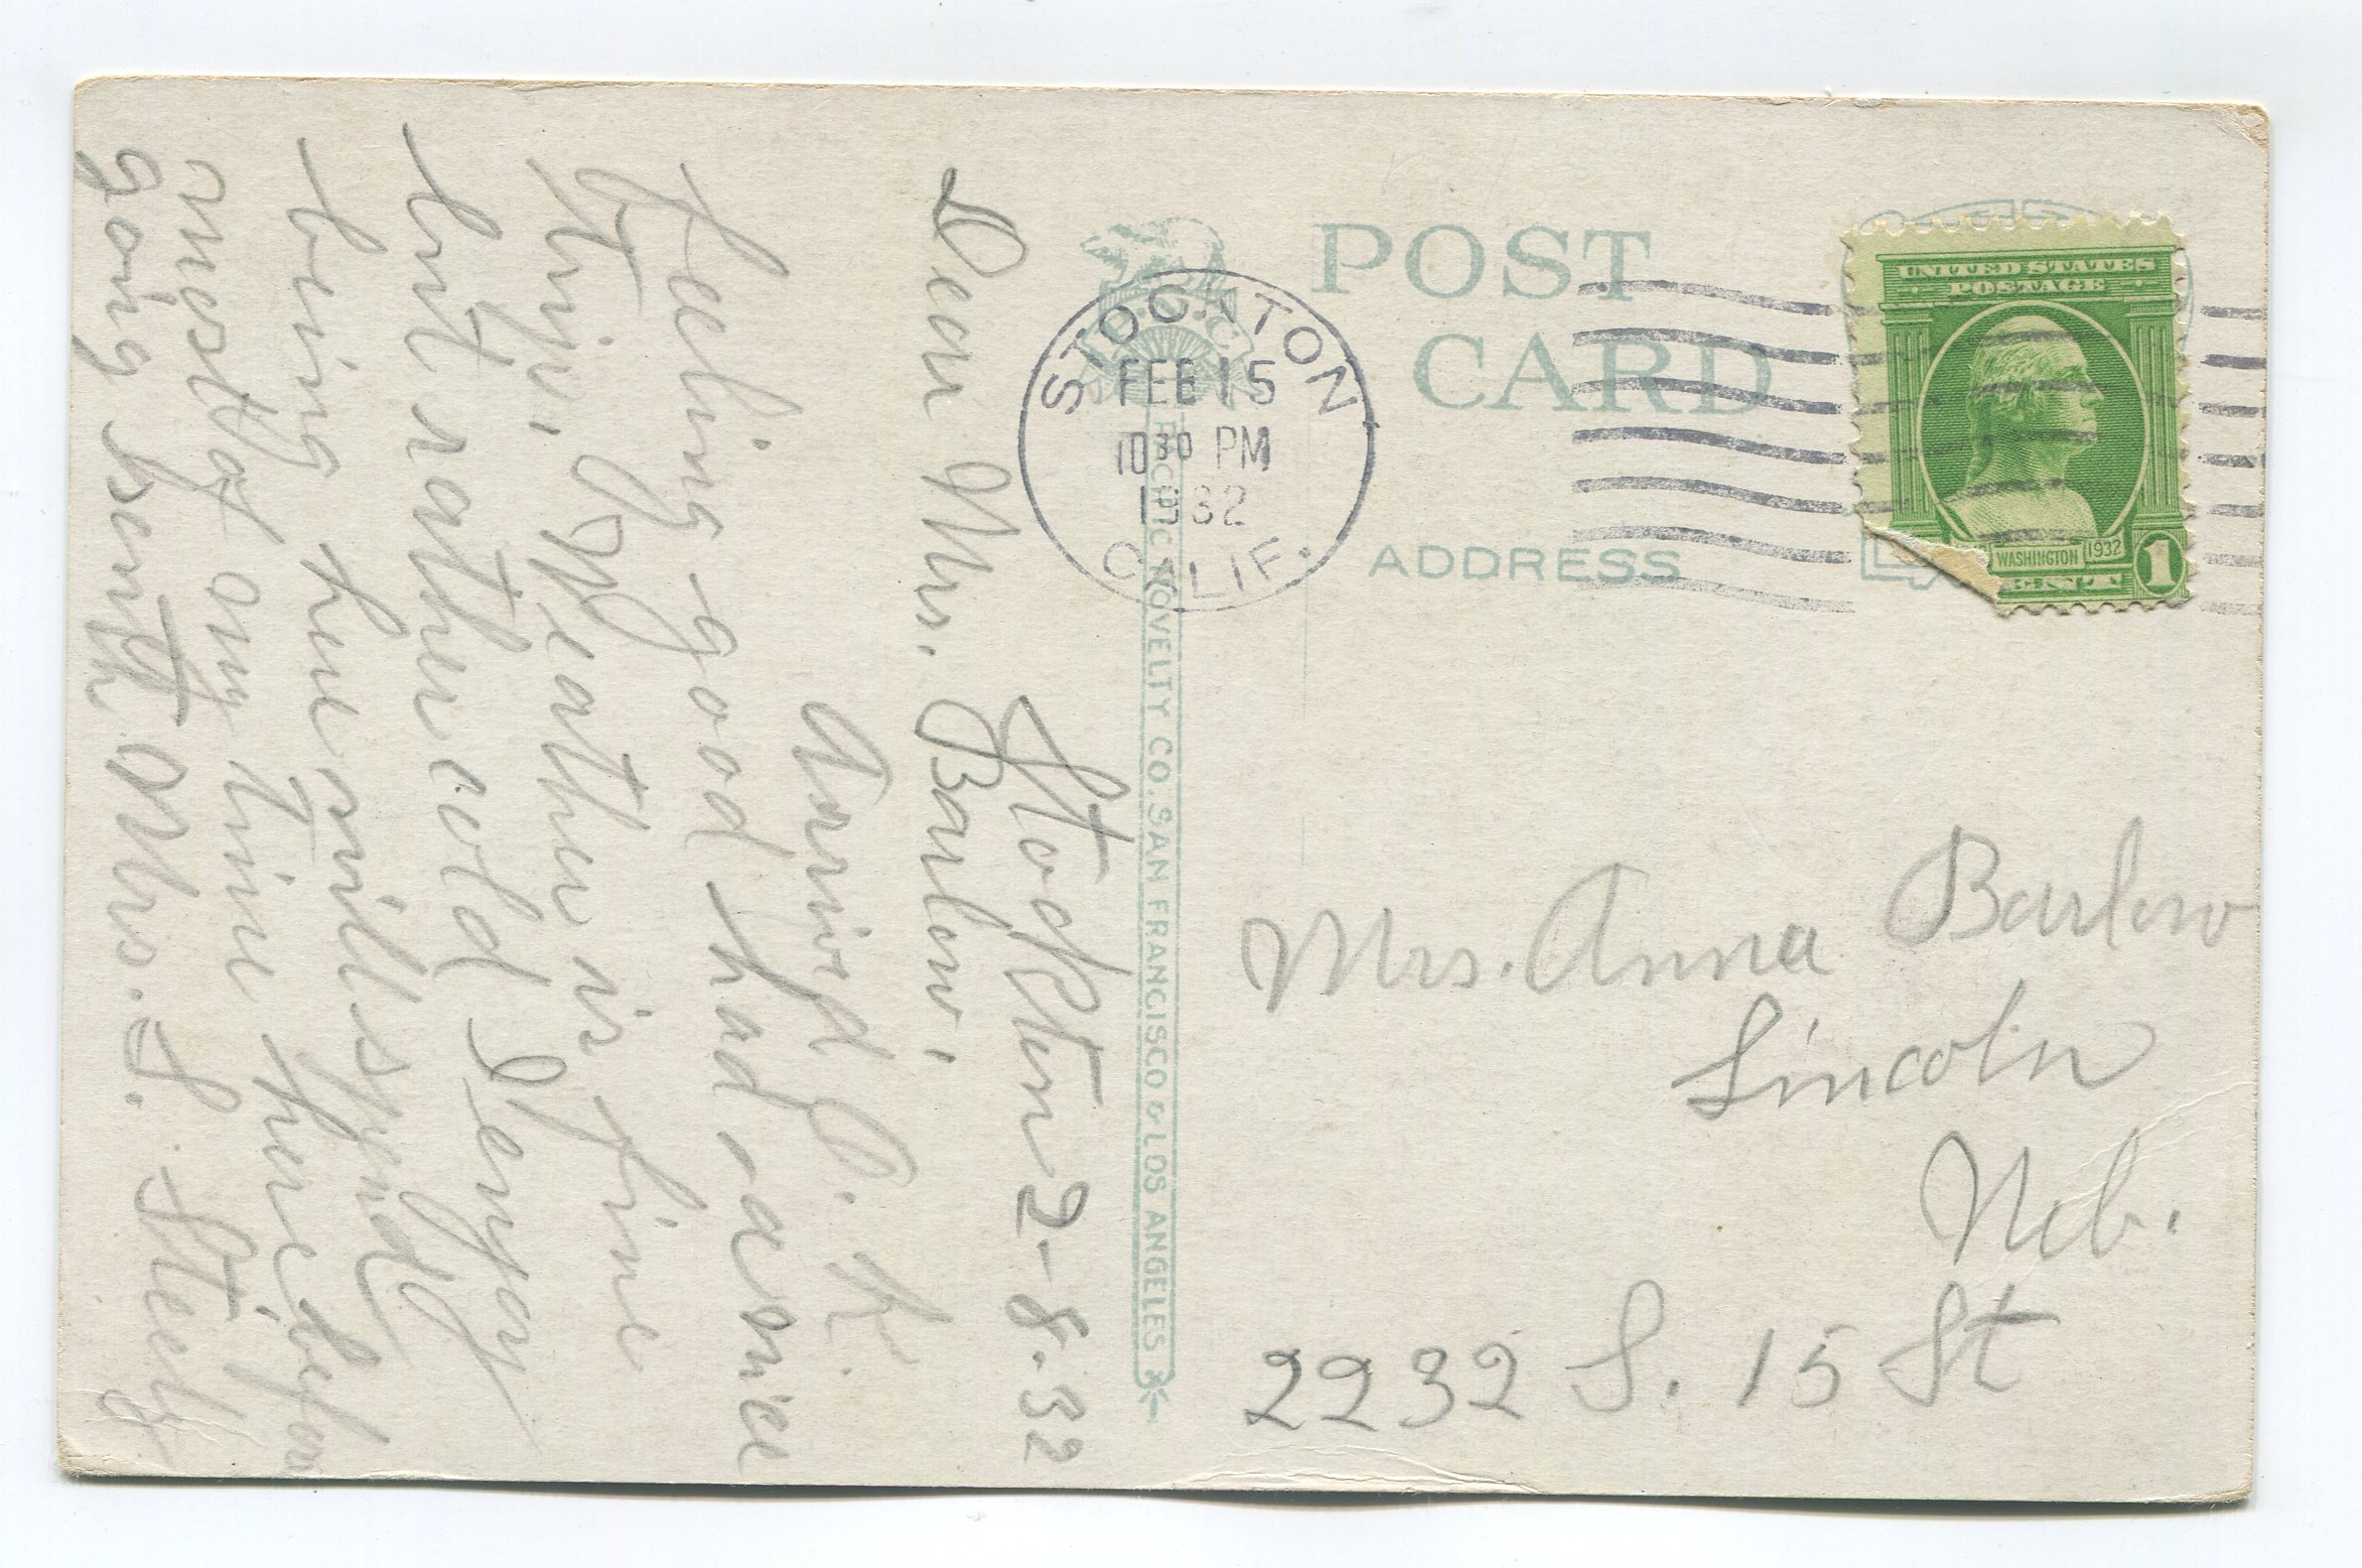 POST
CARD
ADDRESS
UNITED STATES
POSTAGE
WASHINGTON 1932
1
STOCKTON
FEB 15
10 30 PM
1932
CALIF.
PACIFIC NOVELTY CO. SAN FRANCISCO & LOS ANGELES
Stockton 2-8.32
Dear Mrs. Barlow,
Arrived O. K.
feeling good had a nice
trip, Weather is fine
but rather cold I enjoy
being here will spend
most of my time here before
going south Mrs. S. Steely
Mrs. Anna Barlow
Lincoln
Neb.
2232 S. 15 St